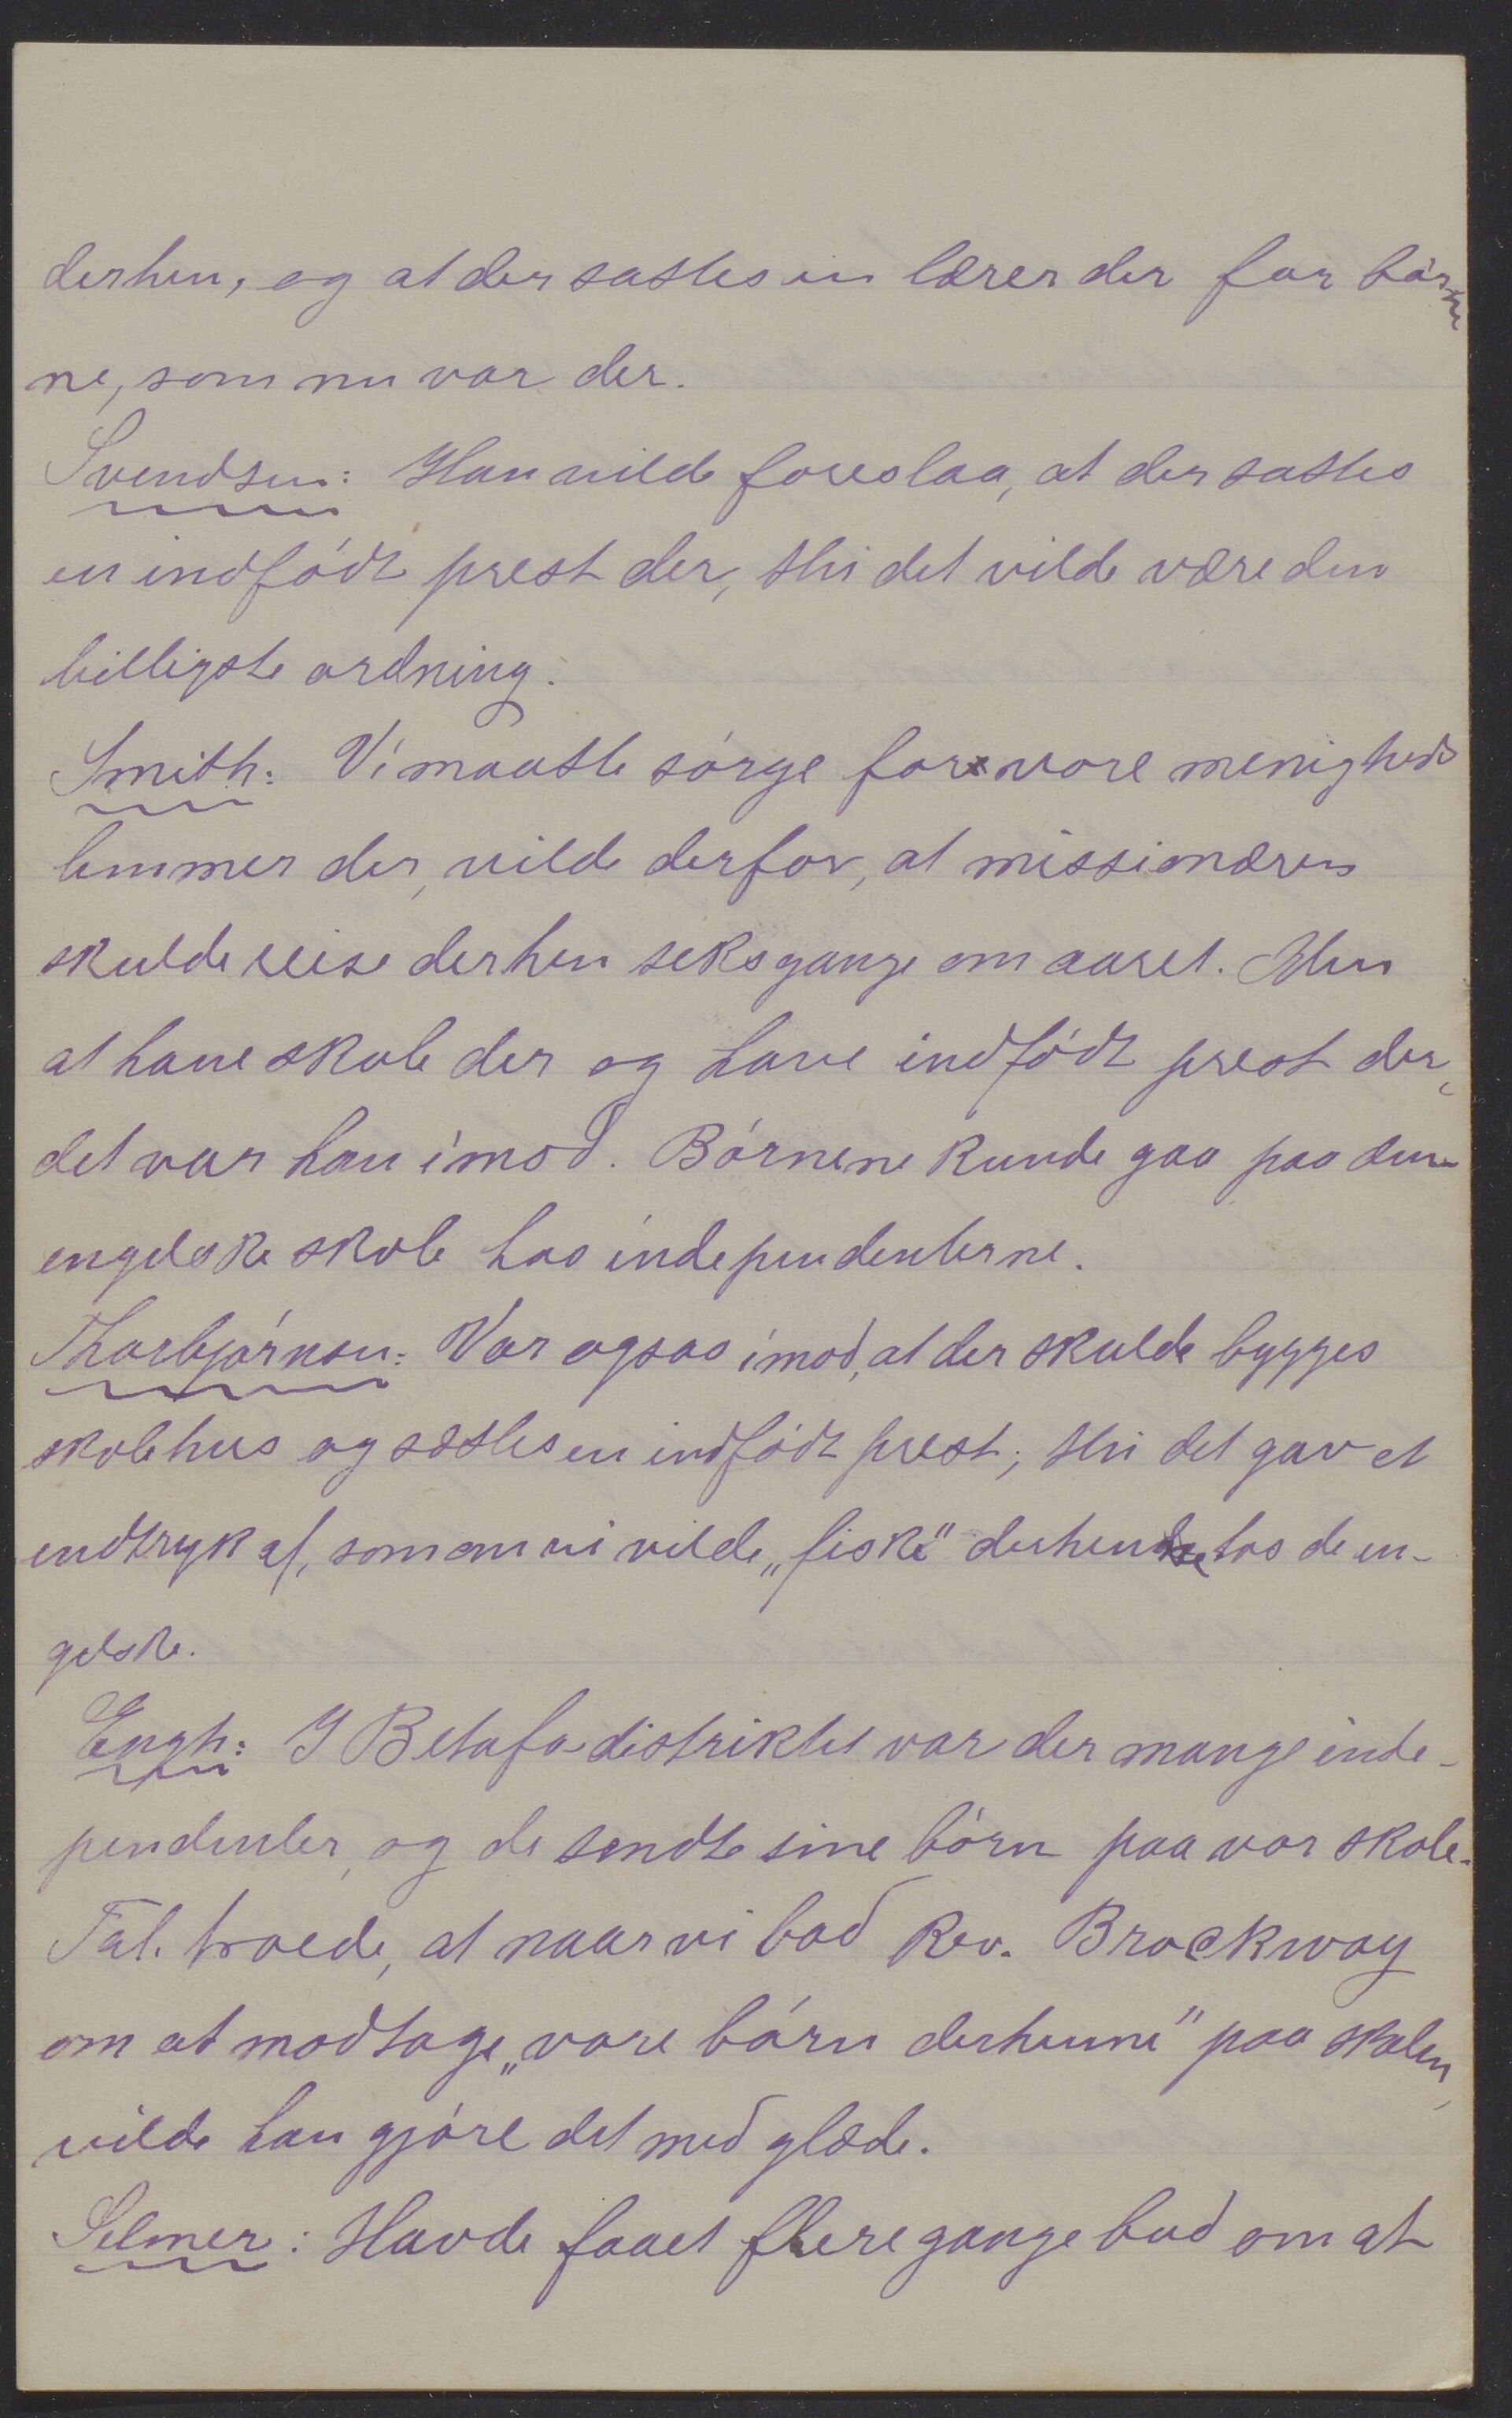 derhen, og at der sattes en lærer der for bör-
ne, som nu var der.
Svendsen: Han vilde foreslaa, at der sattes
en indfödt prest der, thi det vilde være den
billigste ordning.
Smith: Vi maatte sörge for vore menigheds
lemmer der, vilde derfor, at missionæren
skulde reise derhen seks gange om aaret. Men
at have skole der og have indfödt prest der,
det var han imod. Börnene kunde gaa paa den
engelske skole hos independenterne.
Thorbjörnsen: Var ogsaa imod, at der skulde bygges
skolehus og sættes en indfödt prest; thi det gav et
indtryk af, som om vi vilde „fiske" derhenne hos de en-
gelske.
Engh: I Betafo-distriktet var der mange inde-
pendenter, og de sendte sine börn paa vor skole.
Tal. troede, at naar vi bad Rev. Brockway
om at modtage „vore börn derhenne" paa skolen,
vilde han gjöre det med glæde.
Selmer: Havde faaet flere gange bud om at